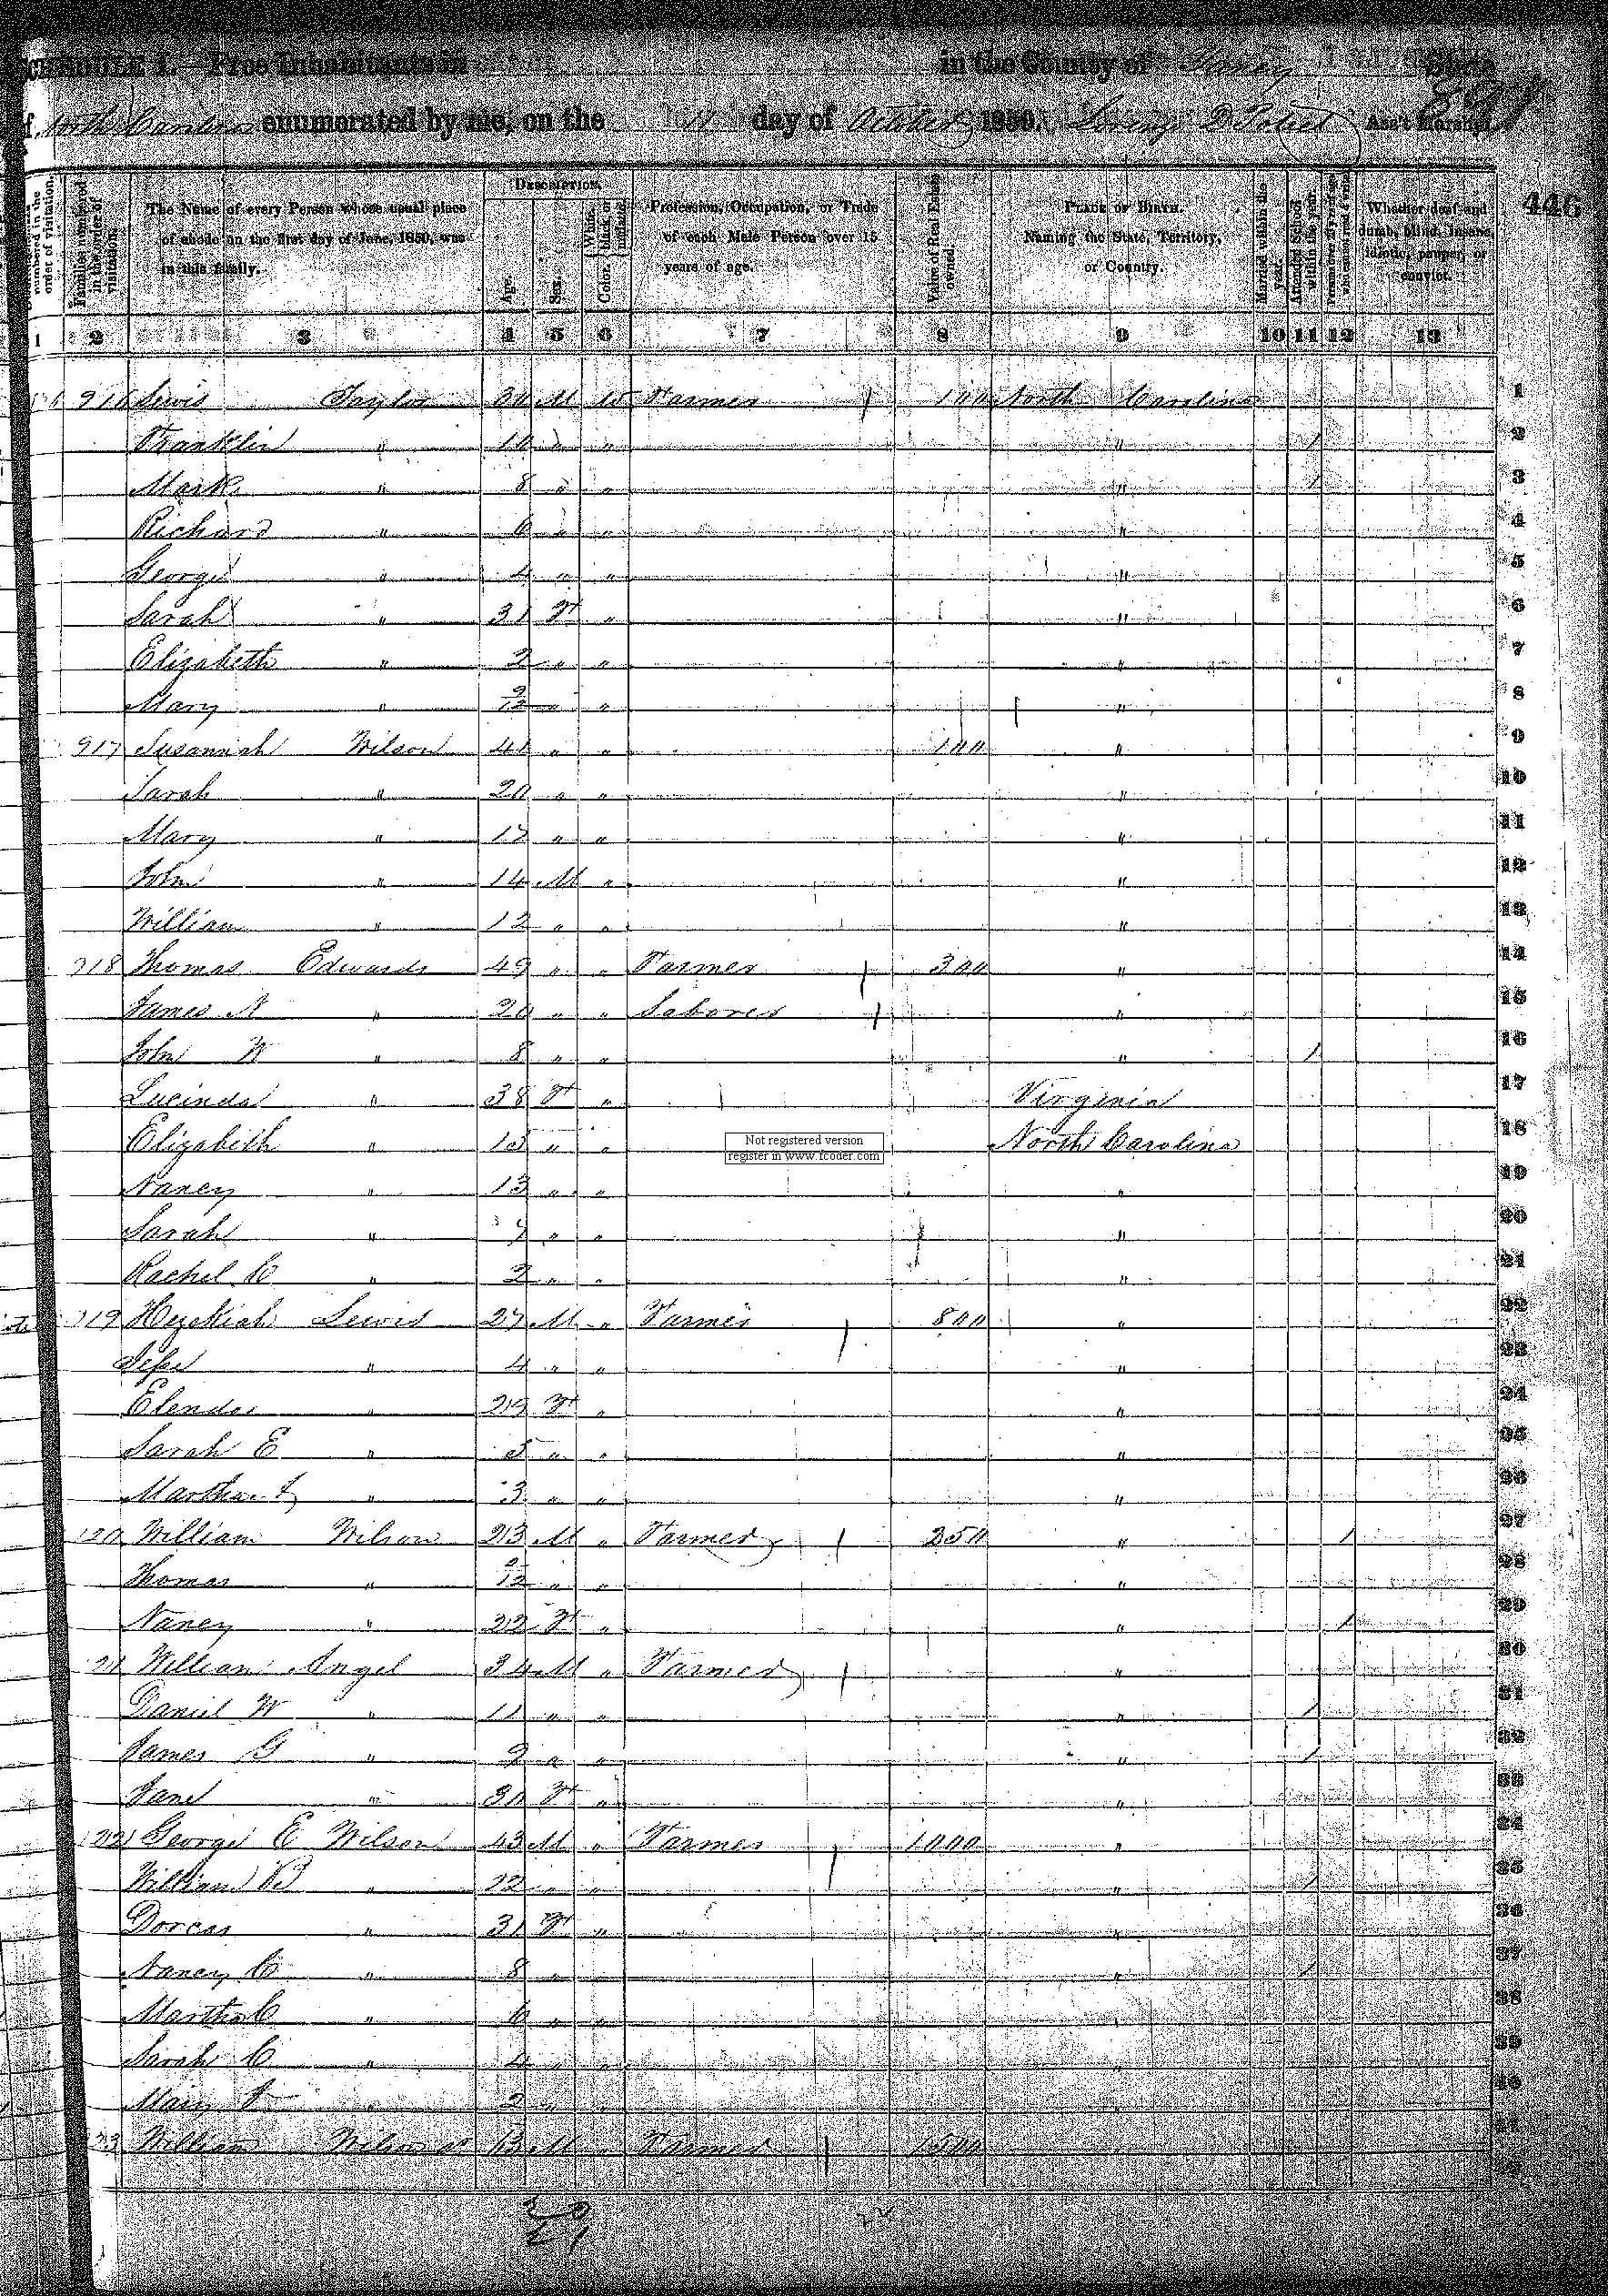 SCHEDULE 1.—Free Inhabitants in in the County of Yancey State
of North Carolina enumerated by me, on the 11 day of October 1850. D Ass't Marshal.
446
numbered in the order of visitation.
Families numbered in the order of visitation.
The Name of every Person whose usual place of abode on the first day of June, 1850, was in this family.
DESCRIPTION.
Age.
Sex.
Color. White, black, or mulatto.
Profession, Occupation, or Trade of each Male Person over 15 years of age.
Value of Real Estate owned.
PLACE OF BIRTH. Naming the State, Territory, or Country.
Married within the year.
Attended School within the year.
Persons over 20 y'rs of age who cannot read & write.
Whether deaf and dumb, blind, insane, idiotic, pauper, or convict.
1 2 3 4 5 6 7 8 9 10 11 12 13
916 Lewis Taylor M W Farmer 100 North Carolina 1
Franklin " 10 " " " 1 2
Mark " 8 " " " 1 3
Richard " 6 " " " 4
George " 4 " " " 5
Sarah " 31 F " " 6
Elizabeth " 2 " " " 7
Mary " " " " 8
917 Susannah Wilson 41 " " 100 " 9
Sarah " 20 " " " 10
Mary " 17 " " " 11
John " 14 M " " 12
William " 12 " " " 13
918 Thomas Edwards 49 " " Farmer 300 " 14
James N " 20 " " Laborer " 15
John W " 8 " " " 1 16
Lucinda " 38 F " Virginia 17
Elizabeth " 15 " " North Carolina 18
Nancy " 13 " " " 19
Sarah " " " " 20
Rachel C " 2 " " " 21
919 Hezekiah Lewis 27 M " Farmer 800 " 22
Jesse " 4 " " " 23
Elenda " 29 F " " 24
Sarah E " 5 " " " 25
Martha " 3 " " " 26
920 William Wilson 23 M " Farmer 350 " 1 27
Thomas " " " " 28
Nancy " 22 F " " 1 29
921 William Angel 34 M " Farmer " 30
Daniel W " 11 " " " 1 31
James G " 9 " " " 1 32
Jane " 30 F " " 33
922 George E Wilson 43 M " Farmer 1000 " 34
William B " 12 " " " 1 35
Dorcas " 31 F " " 36
Nancy C " 8 " " 1 37
Martha C " 6 " " 38
Sarah C " 4 " 39
Mary " 2 " 40
923 William Wilson 63 M Farmer 1500 41
Not registered version
register in www.fcoder.com